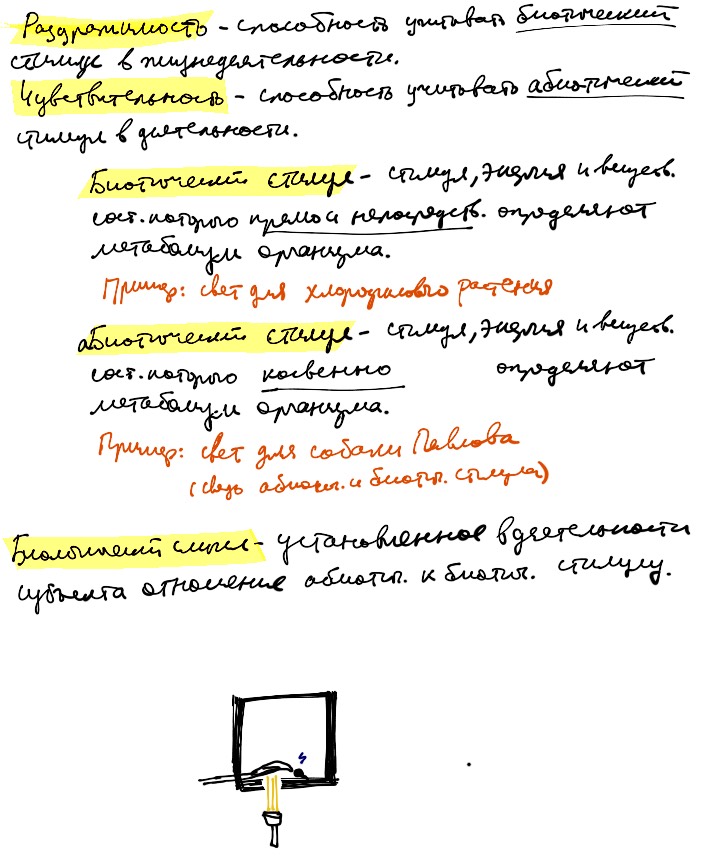 Раздражимость - способность учитывать биотический
стимул в жизнедеятельности.
Чувствительность - способность учитывать абиотический
стимул в деятельности.
Биотический стимул - стимул, энергия и веществ.
сост. которого прямо и непосредств. определяют
метаболизм организма.
Пример: свет для хлорофилового растения
абиотический стимул - стимул, энергия и веществ.
сост. которого косвенно определяют
метаболизм организма.
Пример: свет для собаки Павлова
(связь абиотич. и биотич. стимула)
Биологический смысл - установленное в деятельности
субъекта отношение абиотич. к биотич. стимулу.